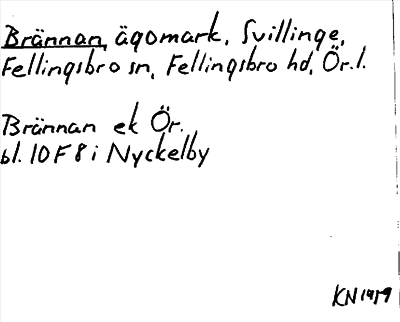 Brännan, ägomark, Svillinge,
Fellingsbro sn, Fellingsbro hd, Ör. l.
Brännan ek Ör.
bl. 10 F 8 i Nyckelby